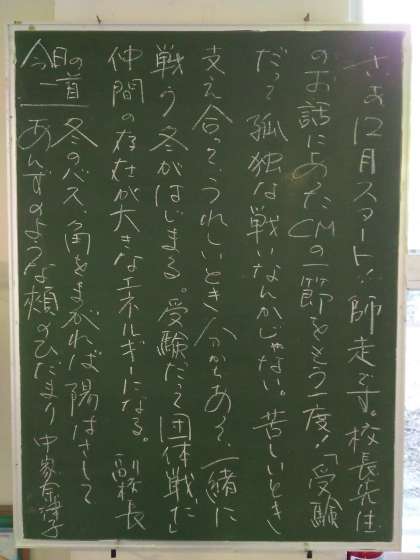 さあ12月スタート!師走です。校長先生
のお話にあったCMの一節をもう一度!「受験
だって孤独な戦いなんかじゃない。苦しいとき
支え合って、うれしいとき分かちあって、一緒に
戦う冬がはじまる。受験だって団体戦だ」
仲間の存在が大きなエネルギーになる。 副校長
今日の一首
冬のバス、角をまがれば陽はさして
あんずのような頬のひだまり 中家菜津子